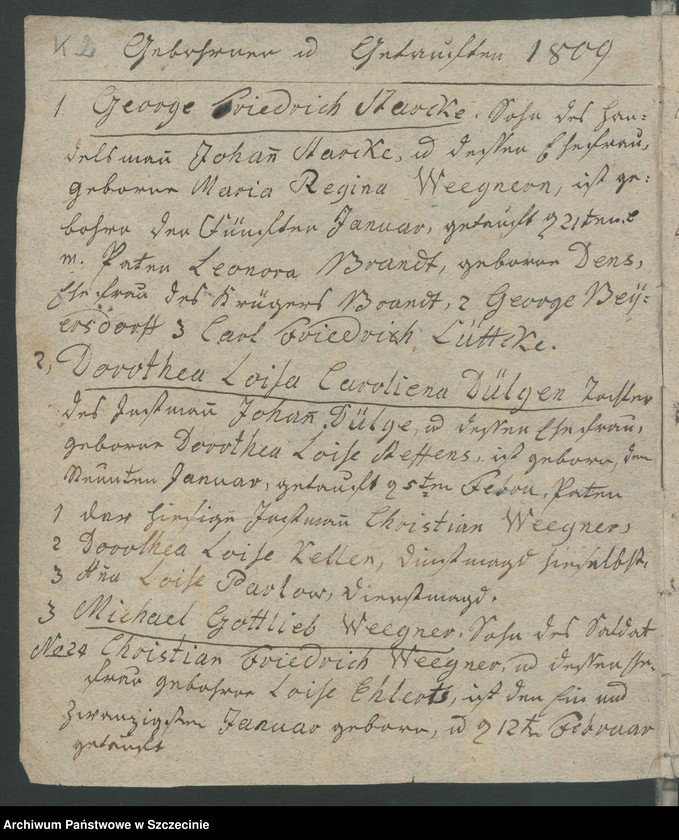 K 2 Gebohrner u Getauften 1809
1 George Friedrich Starcke. Sohn des han-
delsmañ Johañ Starcke, u dessen Ehefrau,
geborne Maria Regina Weegnern, ist ge-
bohrn den Fünften Januar, getauft d 21ten e.
m. Paten Leonora Brandt, geborne Dens,
Ehefrau des Krügers Brandt, 2 George Bey-
ersdorff 3 Carl Friedrich Lüttcke.
2, Dorothea Loisa Caroliena Dülgen Tochter
des Instmañ Johañ Dülge, u dessen Ehefrau,
geborne Dorothea Loise Steffens, ist geborn, den
Neunten Januar, getauft d 5ten Febru. Paten
1 der hiesige Instmañ Christian Weegner,
2 Dorothea Loise Kellen, Dinstmagd hieselbst.
3 Añа Loise Parlow, Dienstmagd.
3 Michael Gottlieb Weegner. Sohn des Soldat
No 24 Christian Friedrich Weegner, u dessen Ehe-
frau gebohrne Loise Ehlerts, ist den Ein und
Zwanzigsten Januar geborn, u d 12tn Februar
getauft
Archiwum Państwowe w Szczecinie